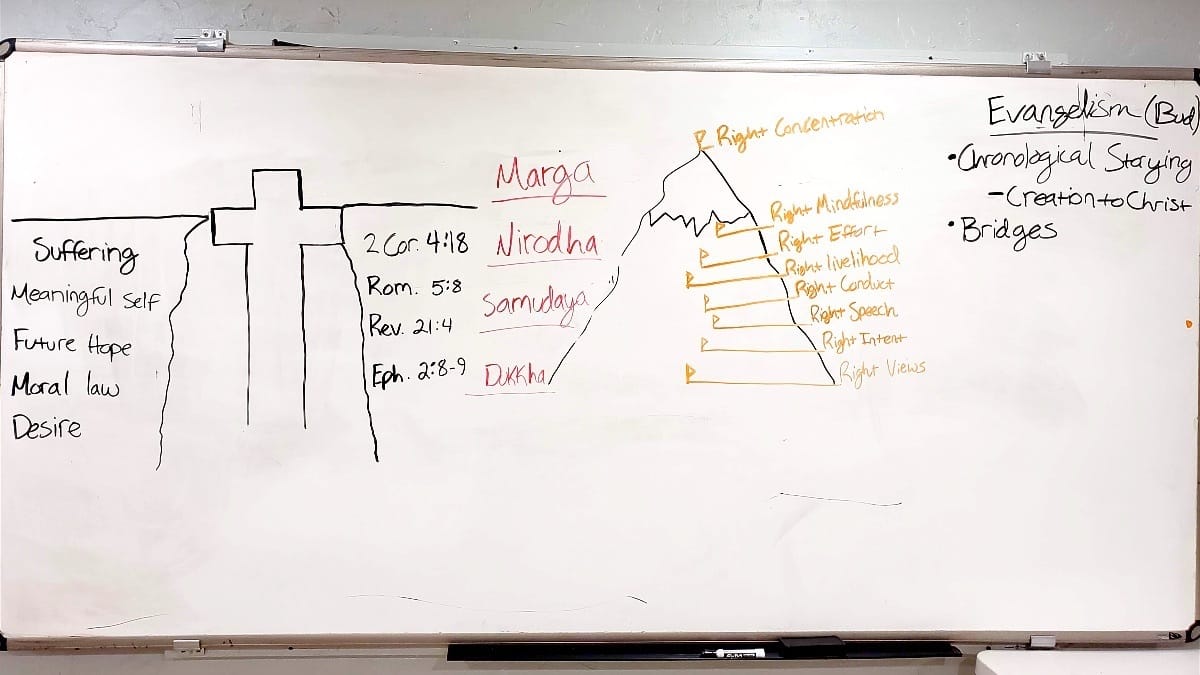 Suffering
Meaningful Self
Future Hope
Moral law
Desire
2 Cor. 4:18
Rom. 5:8
Rev. 21:4
Eph. 2:8-9
Marga
Nirodha
Samudaya
Dukkha
Right Concentration
Right Mindfulness
Right Effort
Right livelihood
Right Conduct
Right Speech
Right Intent
Right Views
Evangelism (Bud)
• Chronological Storying
- Creation to Christ
• Bridges